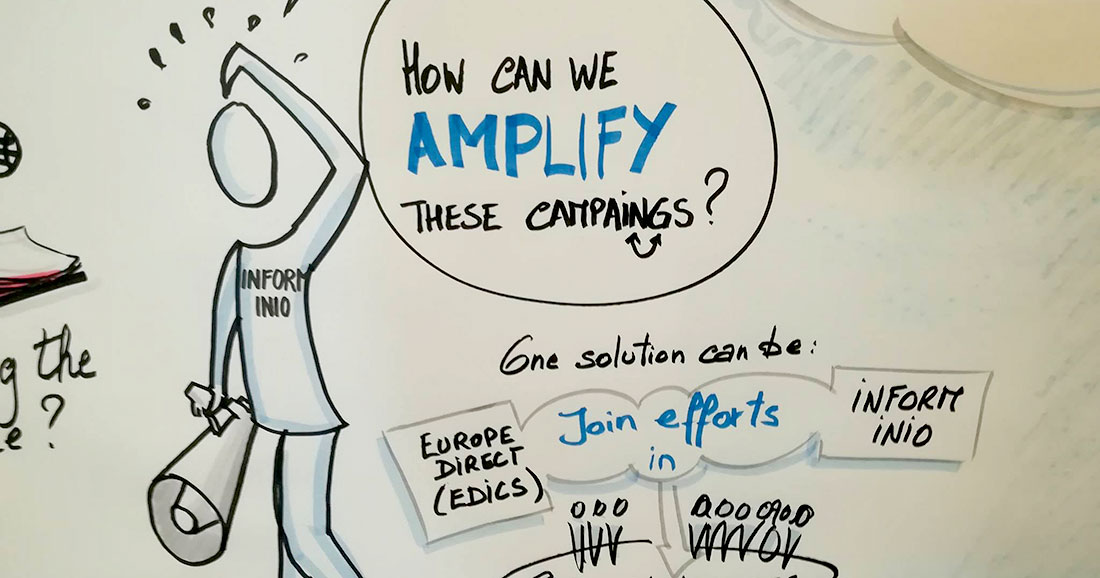 HOW CAN WE
AMPLIFY
THESE CAMPAINGS?
INFORM
INIO
g the
e ?
One solution can be:
Join efforts
in
EUROPE
DIRECT
(EDICS)
INFORM
INIO